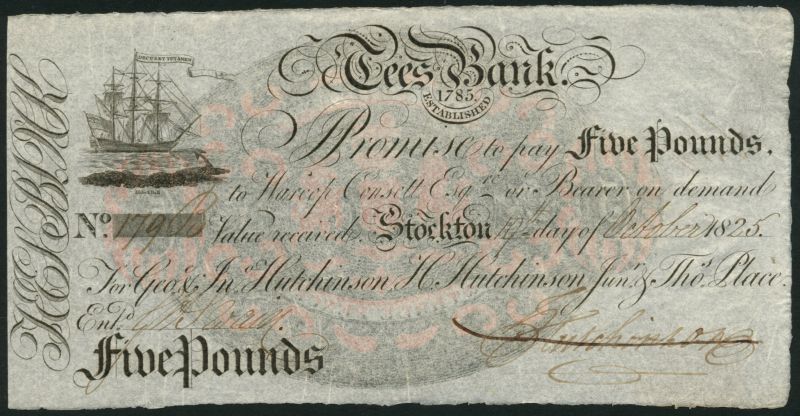 TEES BANK
Tees Bank.
1785.
ESTABLISHED
I Promise to pay Five Pounds.
to Warcop Consett Esqre. or Bearer on demand
No. Value received. Stockton day of October 1825.
For Geo. & Jno. Hutchinson H. Hutchinson Junr. & Thos. Place.
Entd.
Five Pounds
Hutchinson